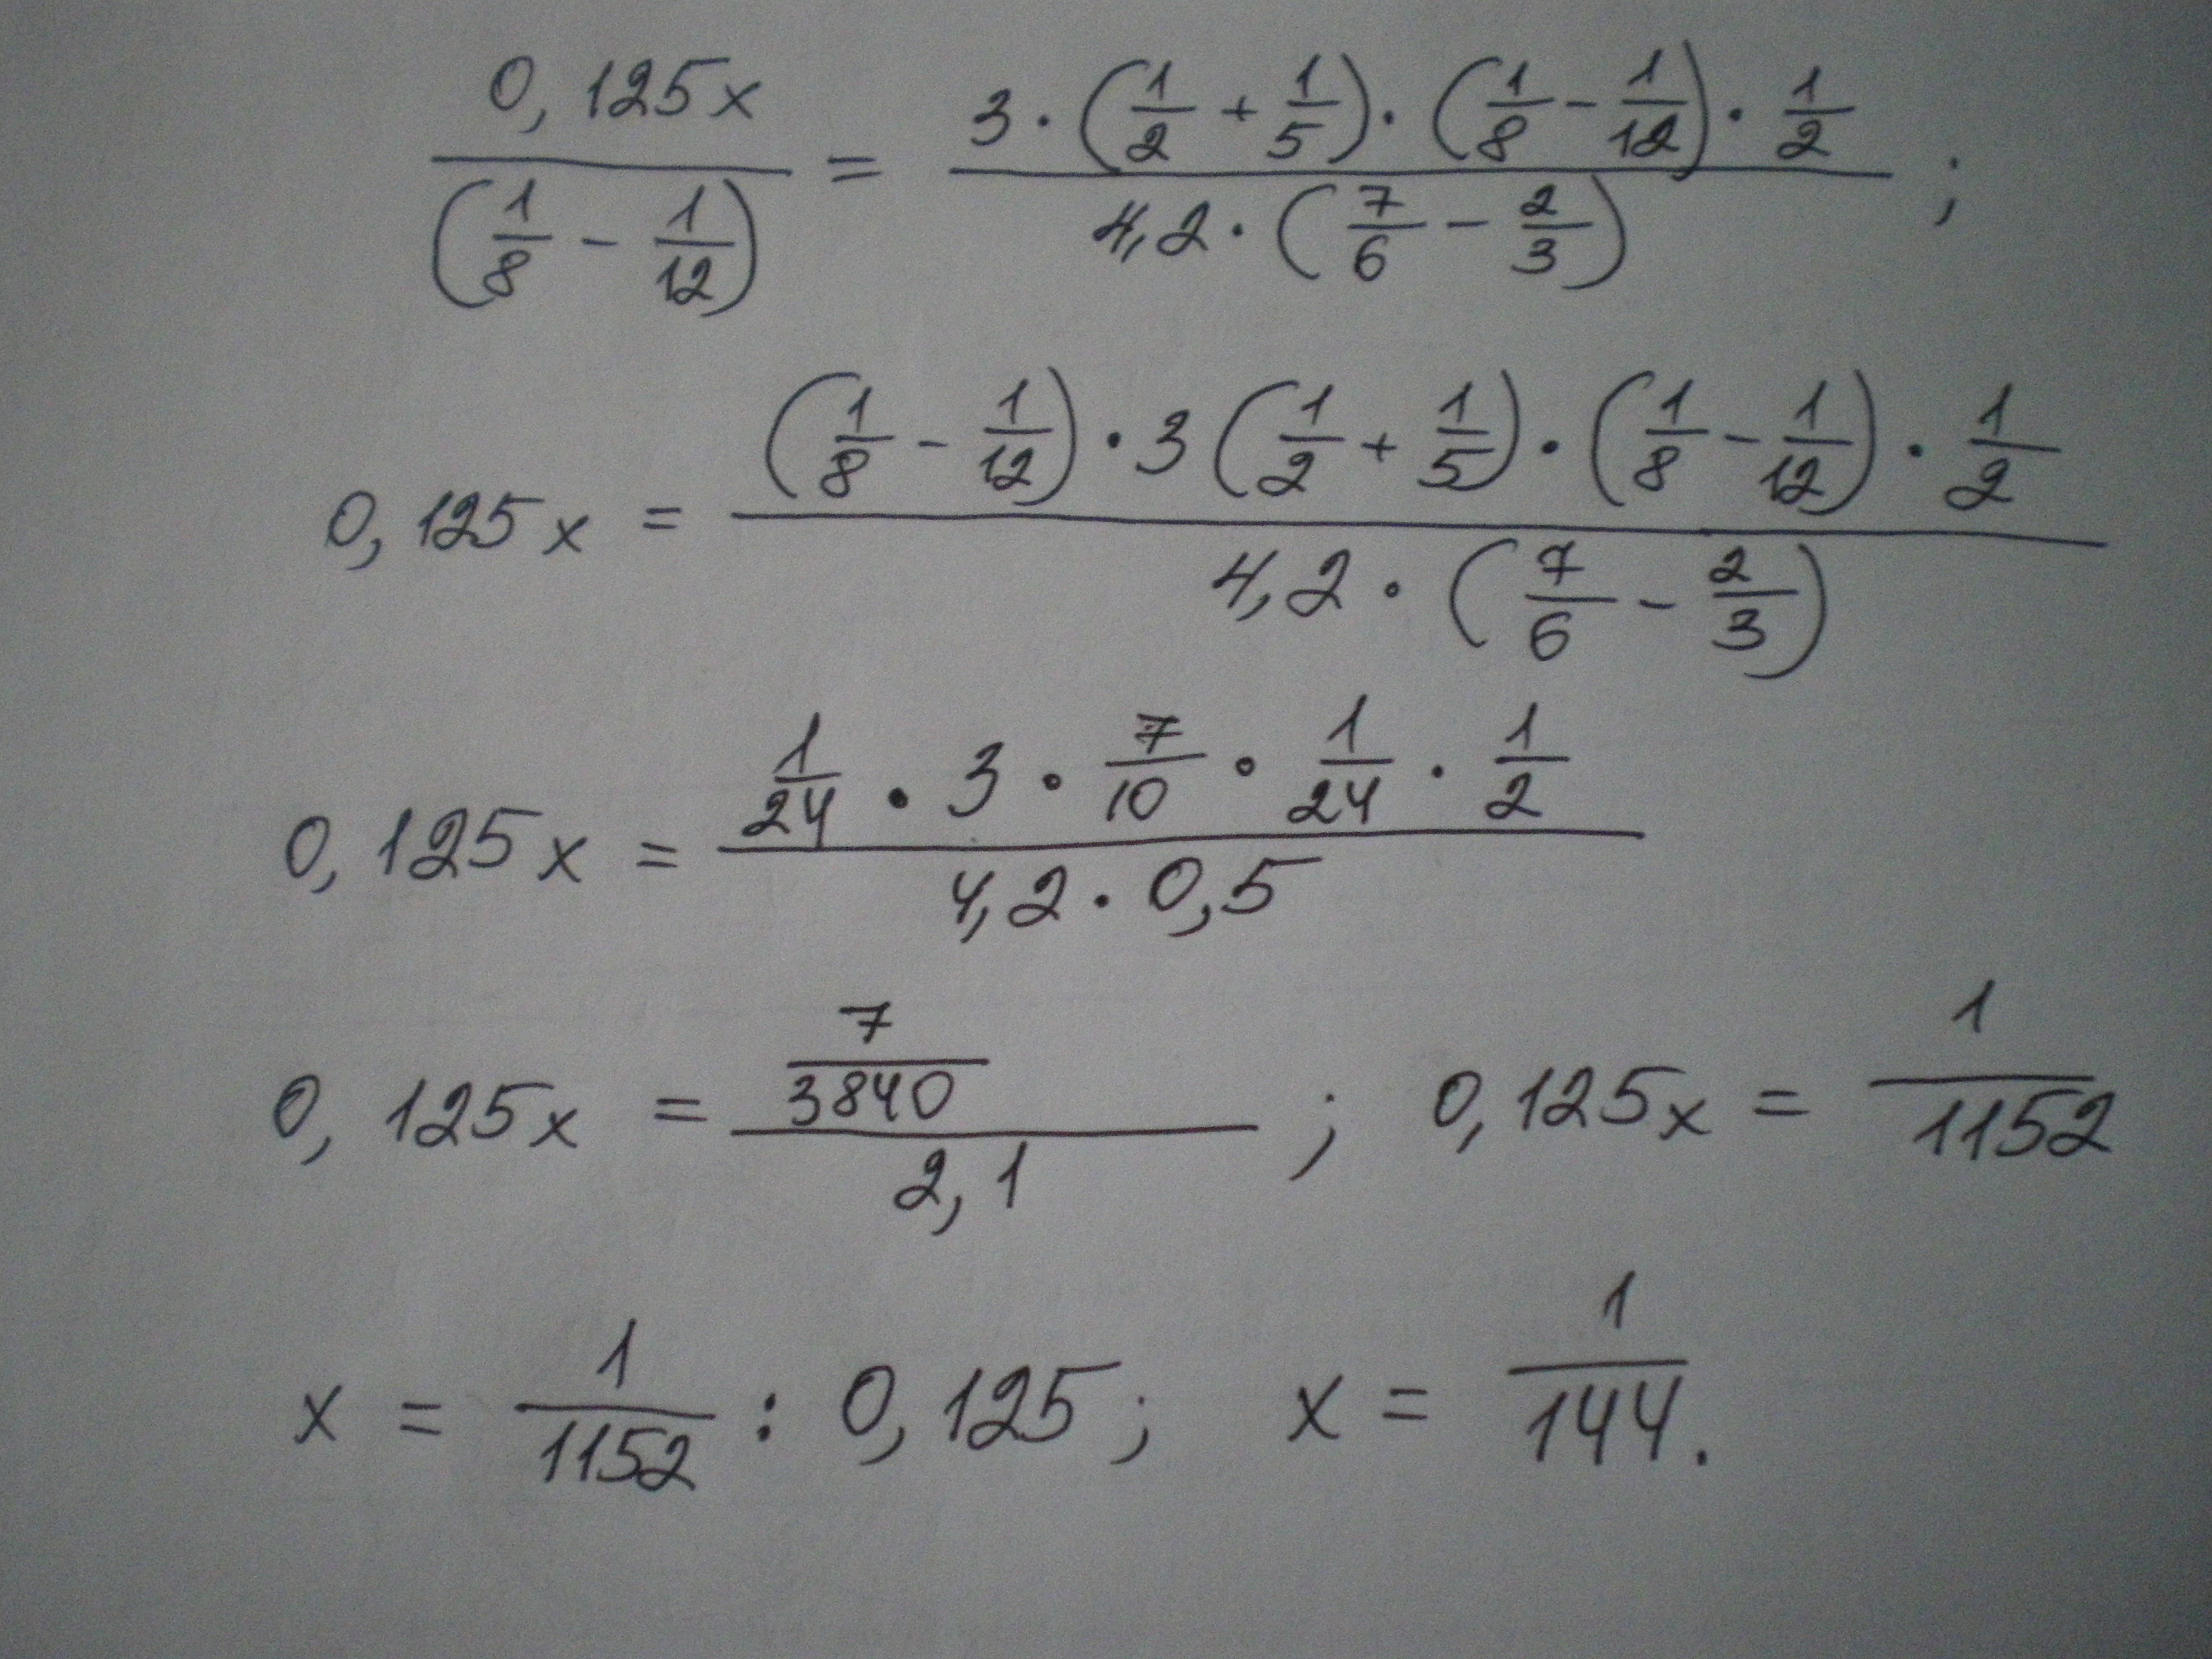 0,125x / (1/8 - 1/12) = 3 · (1/2 + 1/5) · (1/8 - 1/12) · 1/2 / 4,2 · (7/6 - 2/3) ;
0,125x = (1/8 - 1/12) · 3 (1/2 + 1/5) · (1/8 - 1/12) · 1/2 / 4,2 · (7/6 - 2/3)
0,125x = 1/24 · 3 · 7/10 · 1/24 · 1/2 / 4,2 · 0,5
0,125x = 7/3840 / 2,1 ; 0,125x = 1/1152
x = 1/1152 : 0,125; x = 1/144.